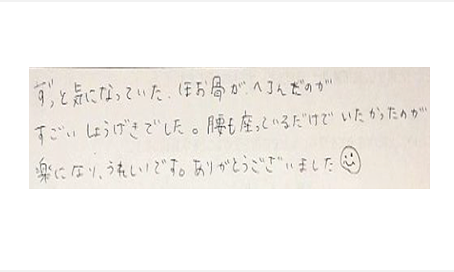 ずっと気になっていた、ほお骨が、へこんだのが
すごいしょうげきでした。腰も座っているだけでいたかったのが
楽になり、うれしいです。ありがとうございました